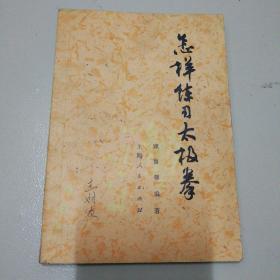 怎样练习太极拳
顾留馨编著
上海人民出版社